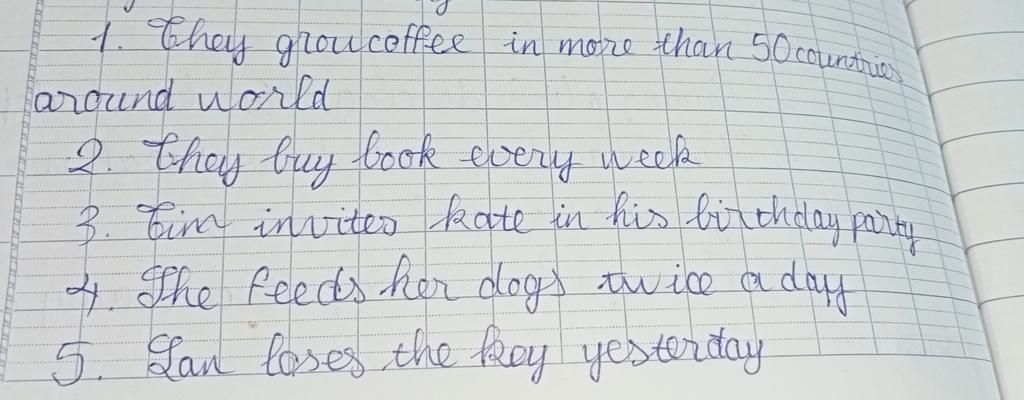 1. They grow coffee in more than 50 countries
around world
2. They buy book every week
3. Tim invites Kate in his birthday party
4. She feeds her dogs twice a day
5. Lan loses the key yesterday